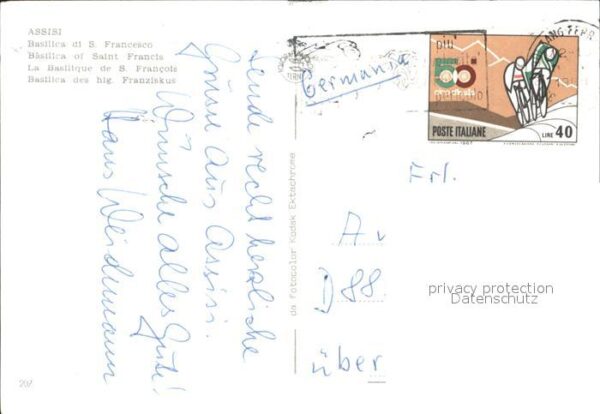 ASSISI
Basilica di S. Francesco
Basilica of Saint Francis
La Basilique de S. François
Basilica des hlg. Franziskus
Sende recht herzliche
Grüsse aus Assisi.
Wünsche alles Gute!
Hans Weidmann
207
da Fotocolor Kodak Ektachrome
Germania
POSTE ITALIANE
LIRE 40
1967
Erl.
Av
D88
über
privacy protection
Datenschutz